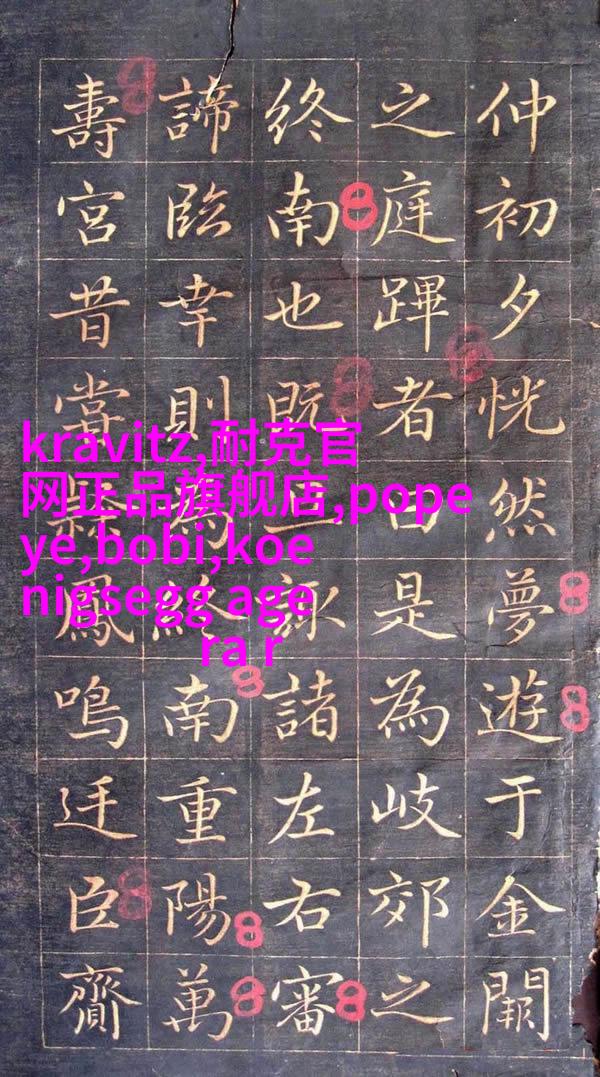 仲初夕恍然夢遊于金闕
之庭蹕者曰是為岐郊之
終南也既旦諸左右審
諦臨幸則為終南重陽萬
壽宮昔嘗鳳鳴廷臣齎
kravitz,耐克官
网正品旗舰店,pope
ye,bobi,koe
nigsegg age
ra r